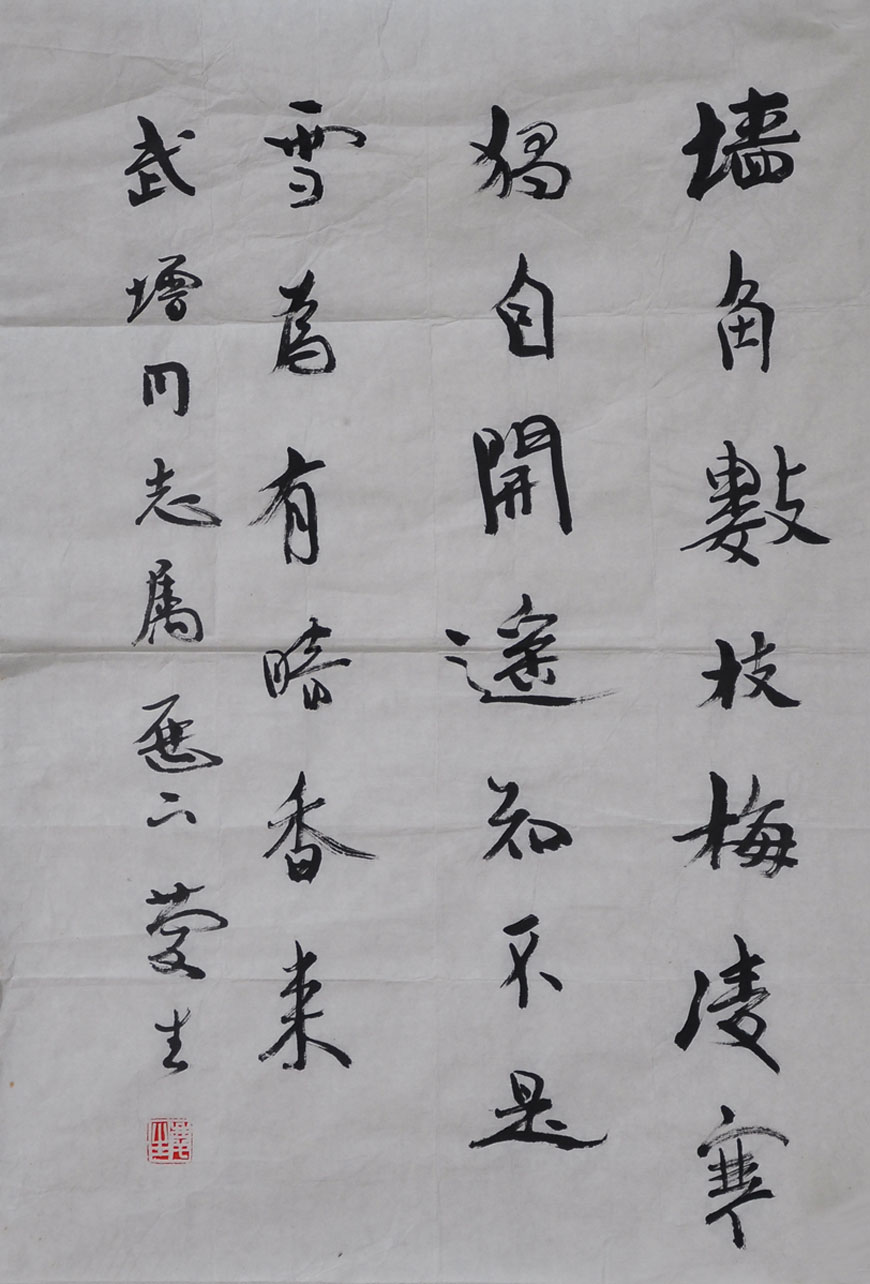 墙角數枝梅凌寒
獨自開遥知不是
雪為有暗香来
武增同志属 生